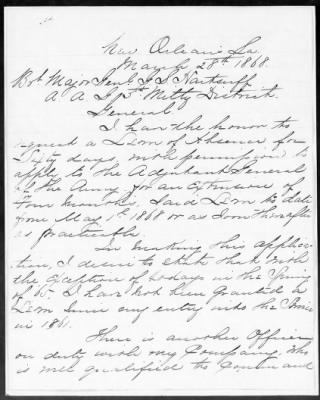 New Orleans La
March 28th 1868.
Bvt Major Genl G L Hartsuff
A A G 5th Milty District.
General
I have the honor to
request a Leave of Absence for
Sixty days with permission to
apply to the Adjutant General
of the Army for an extension of
Four Months, Said Leave to date
from May 1st 1868 or as soon thereafter
as practicable.
In making this applica-
tion, I desire to state that with
the exception of 20 days in the Spring
of 65. I have not been granted a
Leave since my entry into the Service
in 1861.
There is another Officer
on duty with my Company, who
is well qualified to command